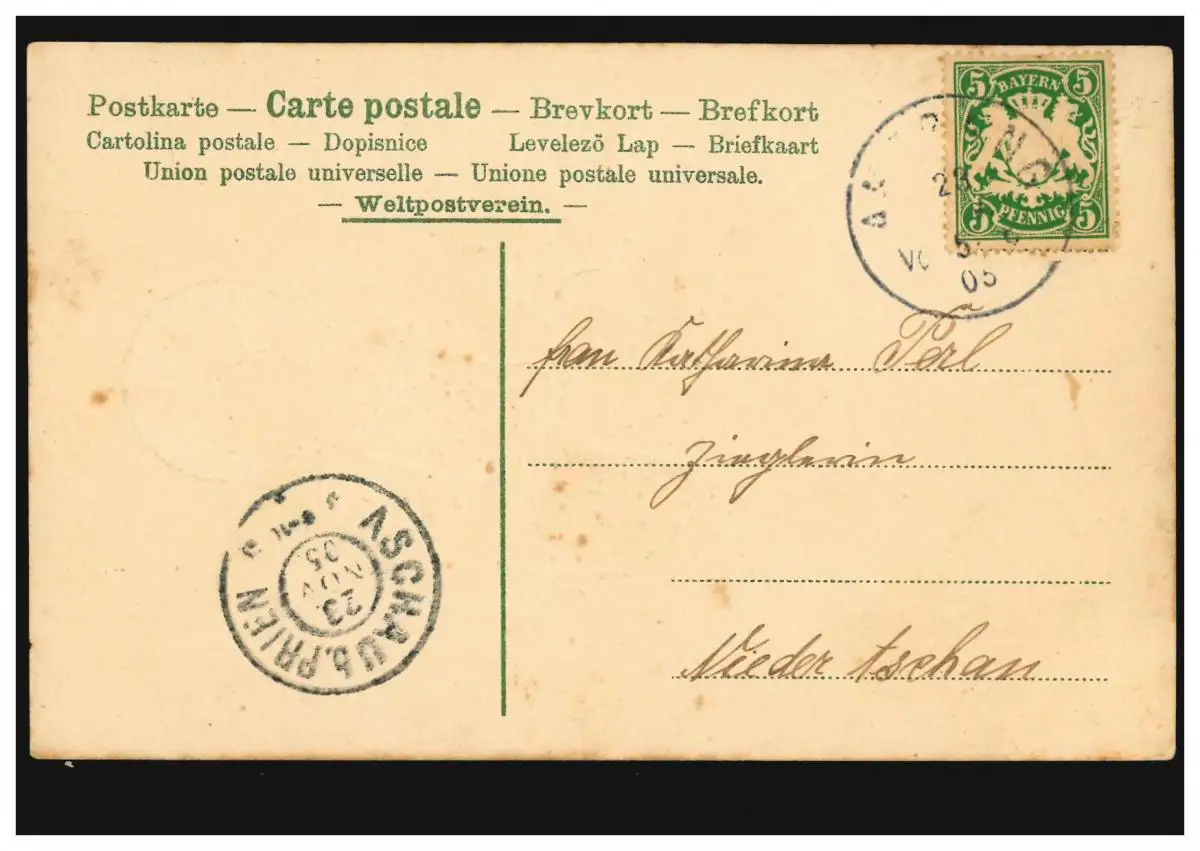 Postkarte — Carte postale — Brevkort — Brefkort
Cartolina postale — Dopisnice Levelező Lap — Briefkaart
Union postale universelle — Unione postale universale.
— Weltpostverein. —
5 BAYERN 5
5 PFENNIG 5
23
05
Frau Katharina Perl
Zieglerin
Niederaschau
ASCHAU b. PRIEN
23.
NOV
05